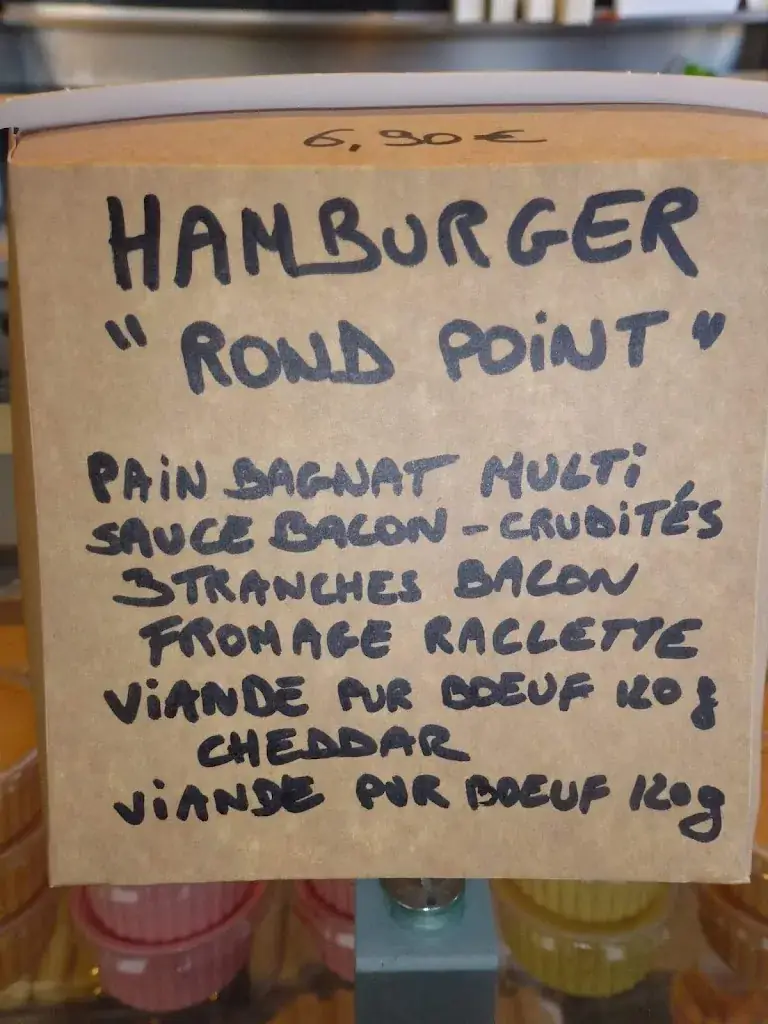 6,90€
HAMBURGER
" ROND POINT "
PAIN BAGNAT MULTI
SAUCE BACON - CRUDITÉS
3 TRANCHES BACON
FROMAGE RACLETTE
VIANDE PUR BOEUF 120g
CHEDDAR
VIANDE PUR BOEUF 120g